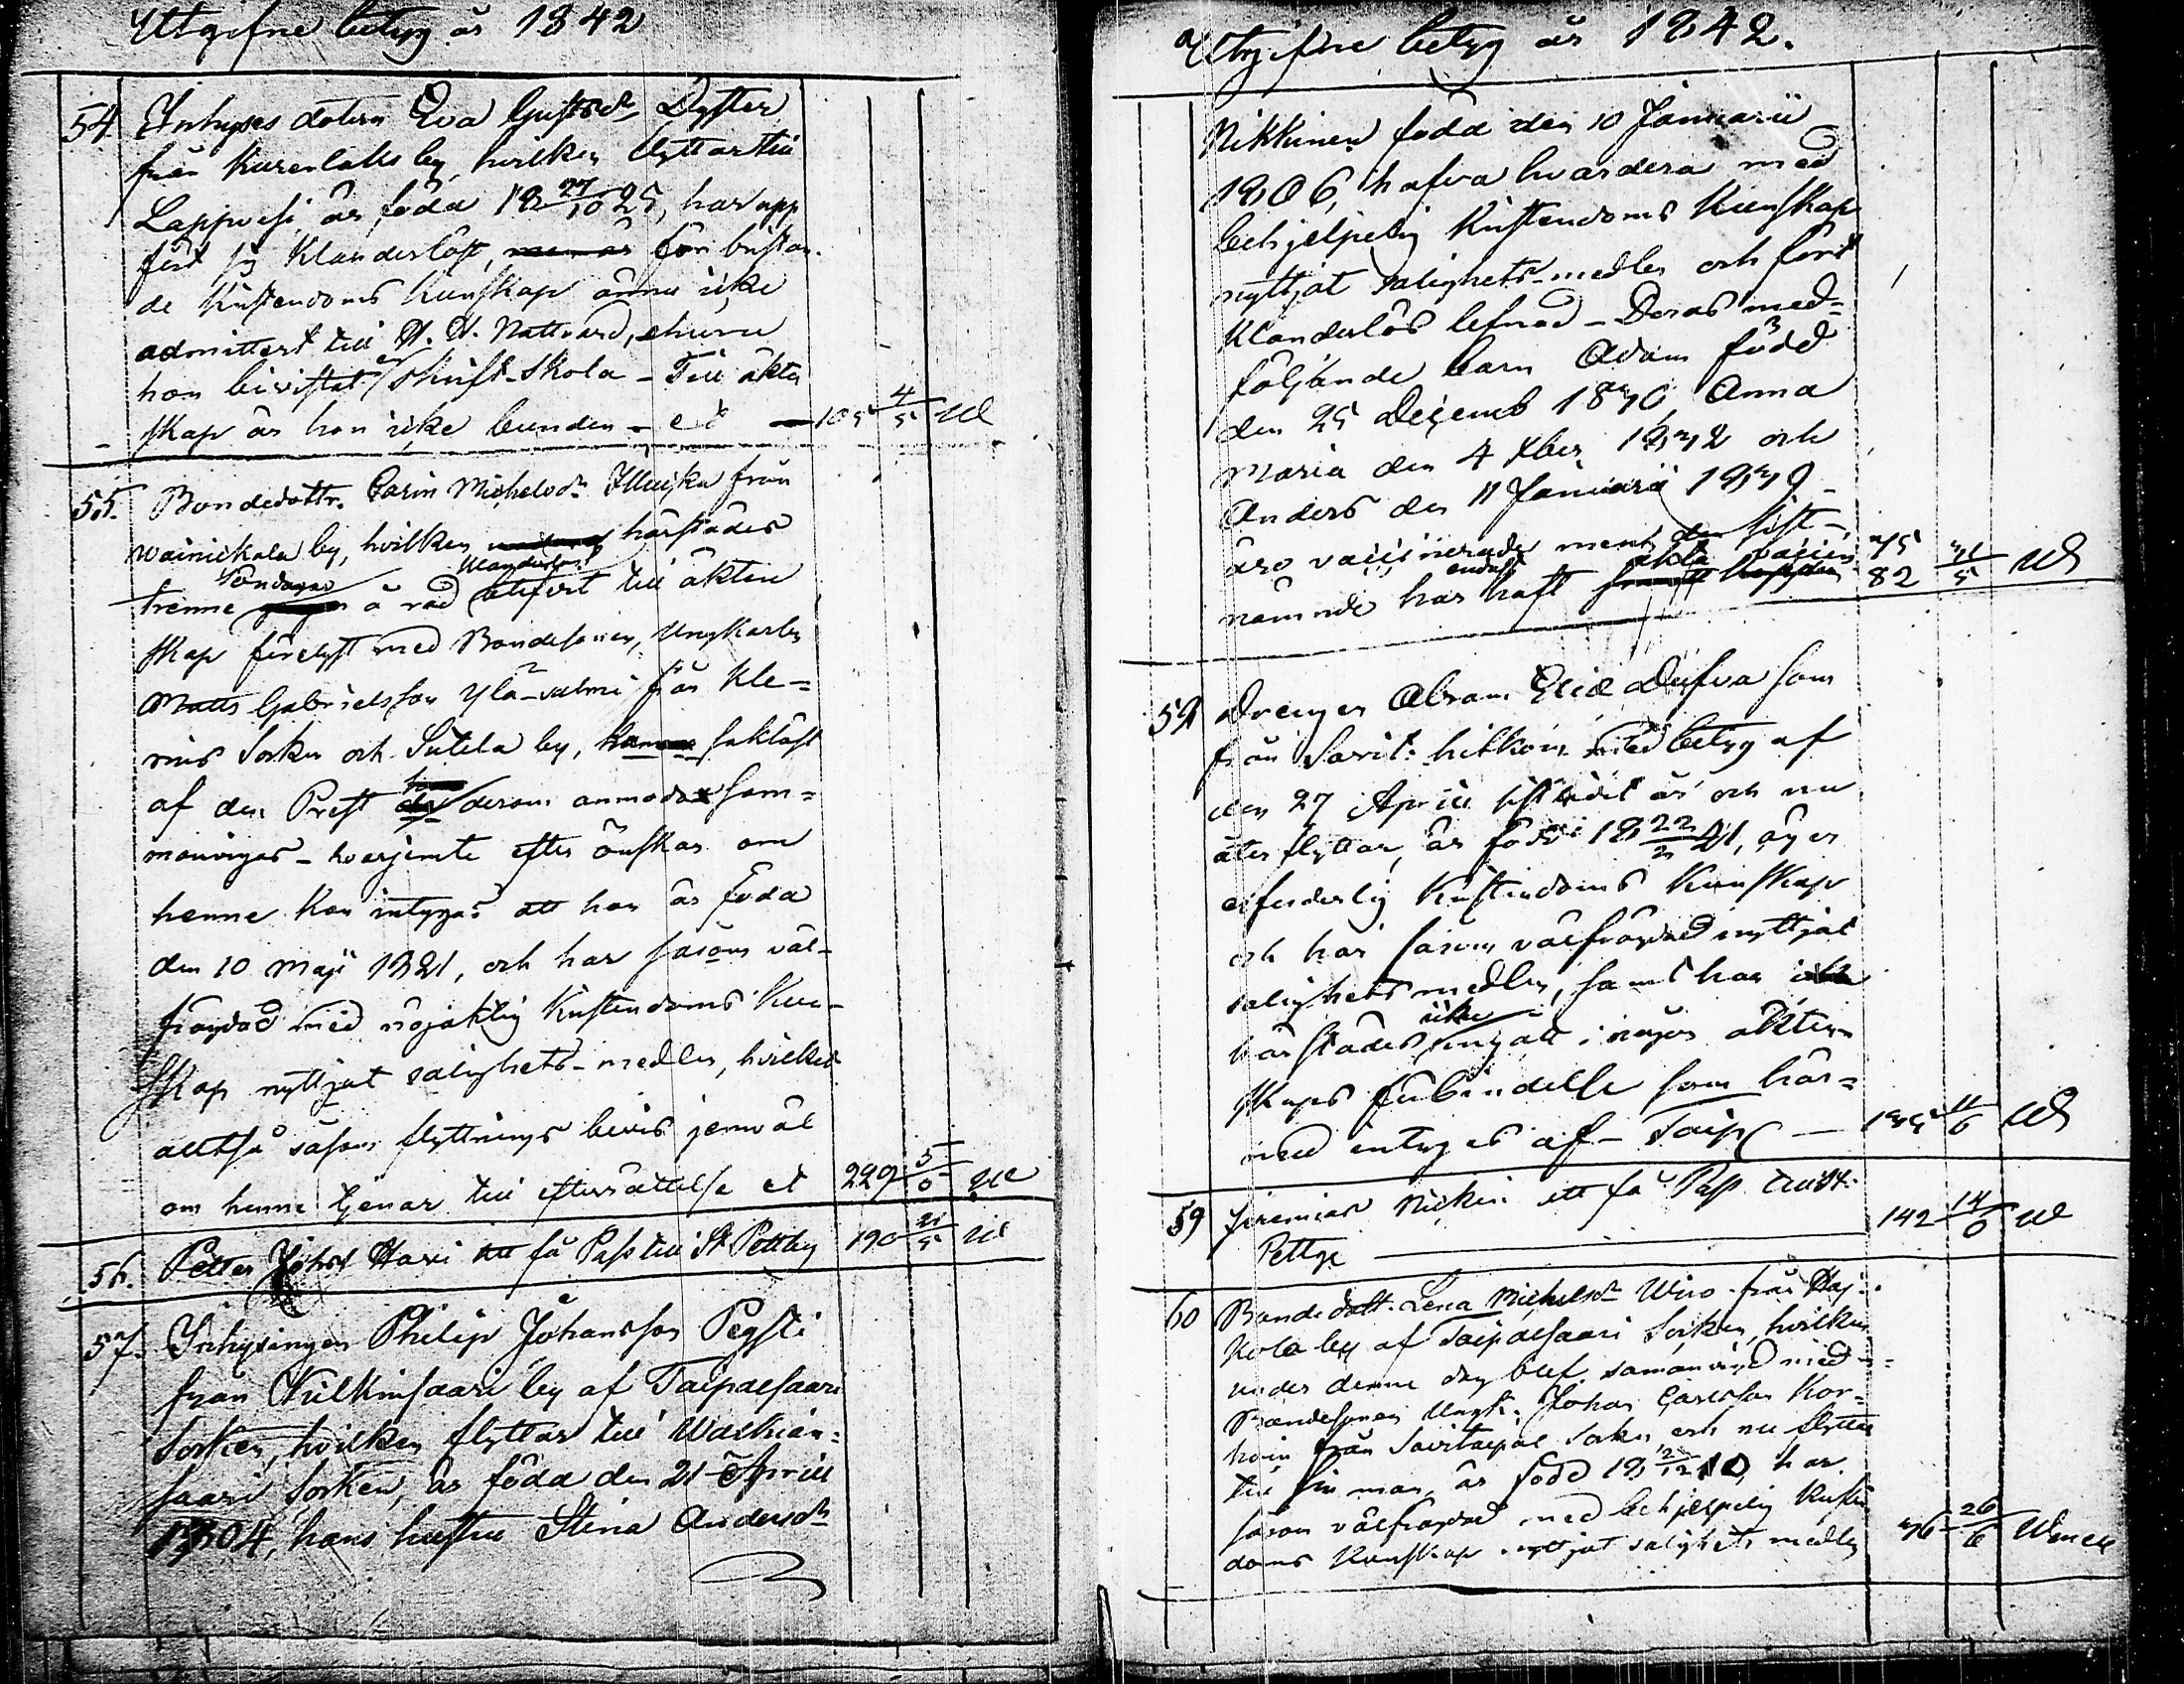 Utgifne betyg år 1842
54 Inhyses dotern Eva Gustafsdr Dyster
från Kurenlaks by, hvilken flyttar till
Lappvesi, är föda 18 27/10 25, har upp
fört sig klanderlöst, men är för bristan-
de Kristendoms kunskap ännu icke
admitterd till H. H. Nattvard, ehuru
hon bevistat skrift-skola - Till äkten
skap är hon icke bunden - 105 4/5 W
55. Bondedottr. Carin Michelsdr från
Wainickala by, hvilken härstädes
trenne Söndagar å rad oklanderligt till äkten
skap förelyst med Bondesonen, Ungkarlen
Matts Gabrielsson Ylä-salmi från Kle-
mis Sorken och Sutela by, saklöst
af den Prest derom anmodas sam-
manviges - hvarjemte efter önskan om
henne kan intygas att hon är föda
den 10 Maji 1821, och har såsom väl-
frägdad med nöjaktig Kristendoms kun-
skap nyttjat salighets-medlen, hvilket
alltså såsom flyttnings bevis jemväl
om henne tjenar till efterrättelse 229 5/6 W
56. Petter Johns Havi att få Pass till St Pettbg 190 21/5 W
57. Inhysingen Philip Johansson Pesti
från Kulkinsaari by af Taipalsaari
Sorken, hvilken flyttar till Walkiä-
saari Sorken, är föda den 21 April
1804, hans hustru Stina Andersdr
Utgifne betyg år 1842.
Nikkinen föda den 10 Januarii
1806, hafva hvardera med
behjelpelig Kristendoms kunskap
nyttjat salighets-medlen och fört
klanderlös lefnad - Deras med-
följande barn Adam född
den 25 Decemb 1830, Anna
Maria den 4 Xber 1832 och
Anders den 11 Januarii 1839 -
äro vaccinerade men den sist-
nämnde har endast haft vaccin 75 82 31/5 W
58 Drengen Abram Ericss Dufva som
från Savit. hitkom med betyg af
den 27 April sistledit år och nu
åter flyttar, är född 18 22/2 21, äger
erforderlig Kristendoms kunskap
och har såsom välfrägdad nyttjat
salighets medlen, samt har
härstädes icke ingått i någon äkten-
skaps förbindelse som här-
med intygas af - Taip. - 11/6 W
59 Jeremias Nickin att få Pass till St.
Pettbg 142 14/6 W
60 Bondedott. Lena Michelsdr Wiro från Haj-
kola by af Taipalsaari Sorken, hvilken
under denne dag blef samanvigd med
Bondesonen Ungk. Johan Carlsson Kor-
hoin från Savitaipal Sorken, och nu flyttar
till sin man, är född 18 2/12 10, har
såsom välfrägdad med behjelpelig Kristen
doms kunskap nyttjat salighets medlen 76 26/6 Wenell